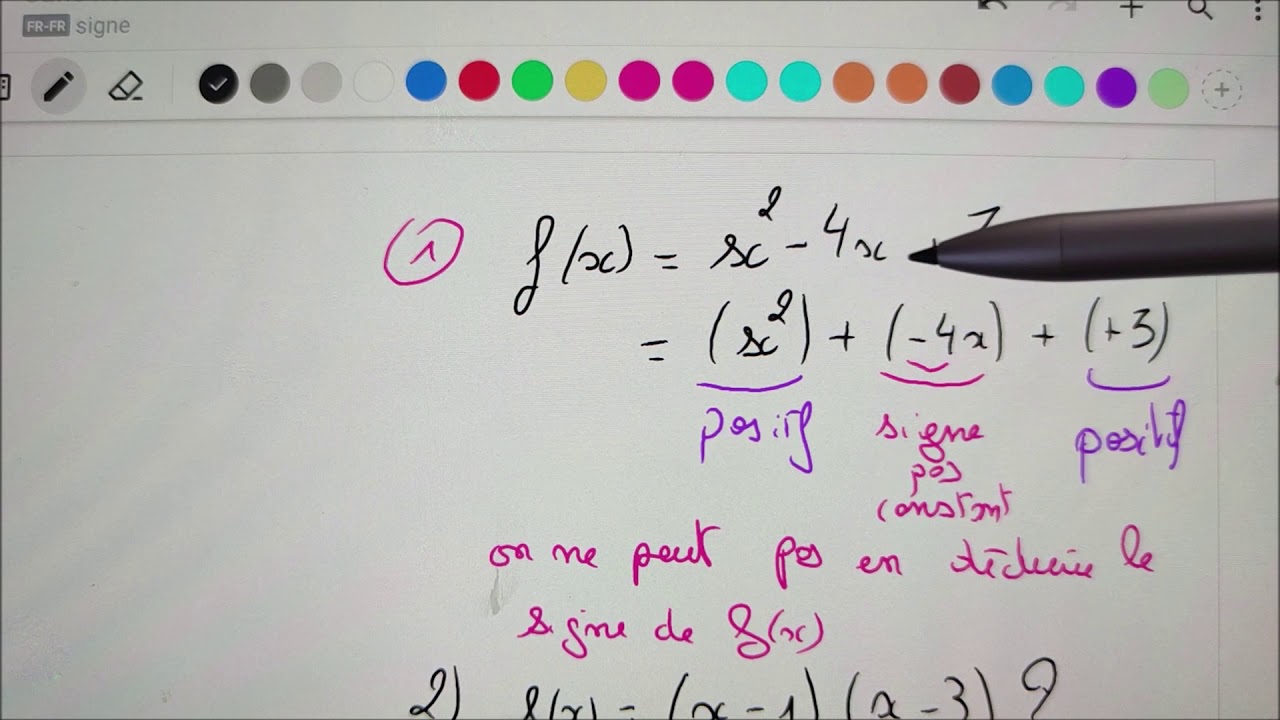 FR-FR signe
① f(x) = x² - 4x
= (x²) + (-4x) + (+3)
positif signe positif
pas
constant
on ne peut pas en déduire le
signe de f(x)
2) f(x) = (x - 1) (x - 3) ?